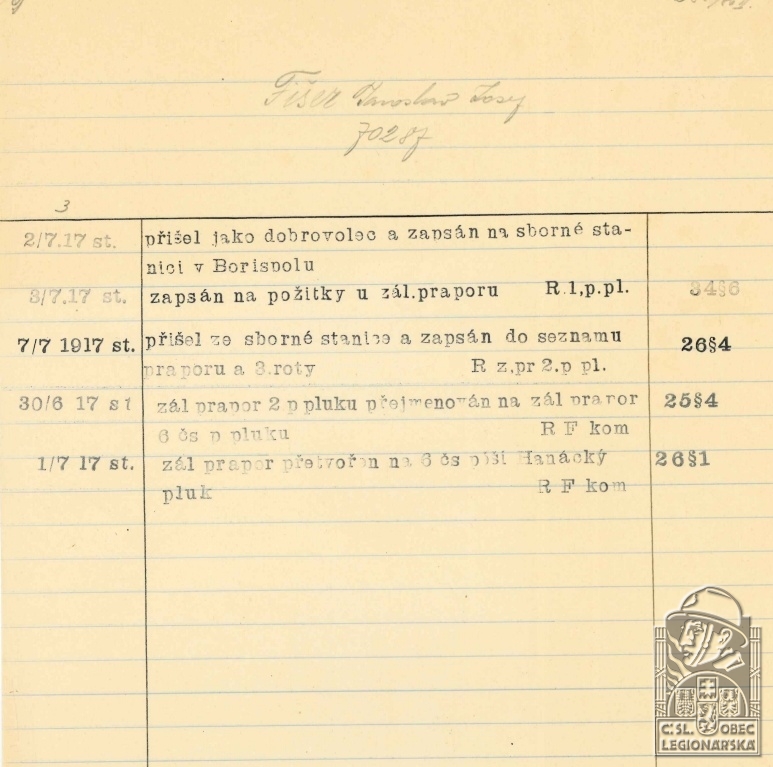 Fišer Jaroslav Josef
70287
3
2/7.17 st. přišel jako dobrovolec a zapsán na sborné sta-
nici v Borispolu
3/7.17 st. zapsán na požitky u zál.praporu R.1,p.pl. 34§6
7/7 1917 st. přišel ze sborné stanice a zapsán do seznamu 26§4
praporu a 3.roty R z.pr 2.p pl.
30/6 17 st zál prapor 2 p pluku přejmenován na zál prapor 25§4
6 čs p pluku R F kom
1/7 17 st. zál prapor přetvořen na 6 čs pěší Hanácký 26§1
pluk R F kom
Č:SL. OBEC
LEGIONÁŘSKÁ